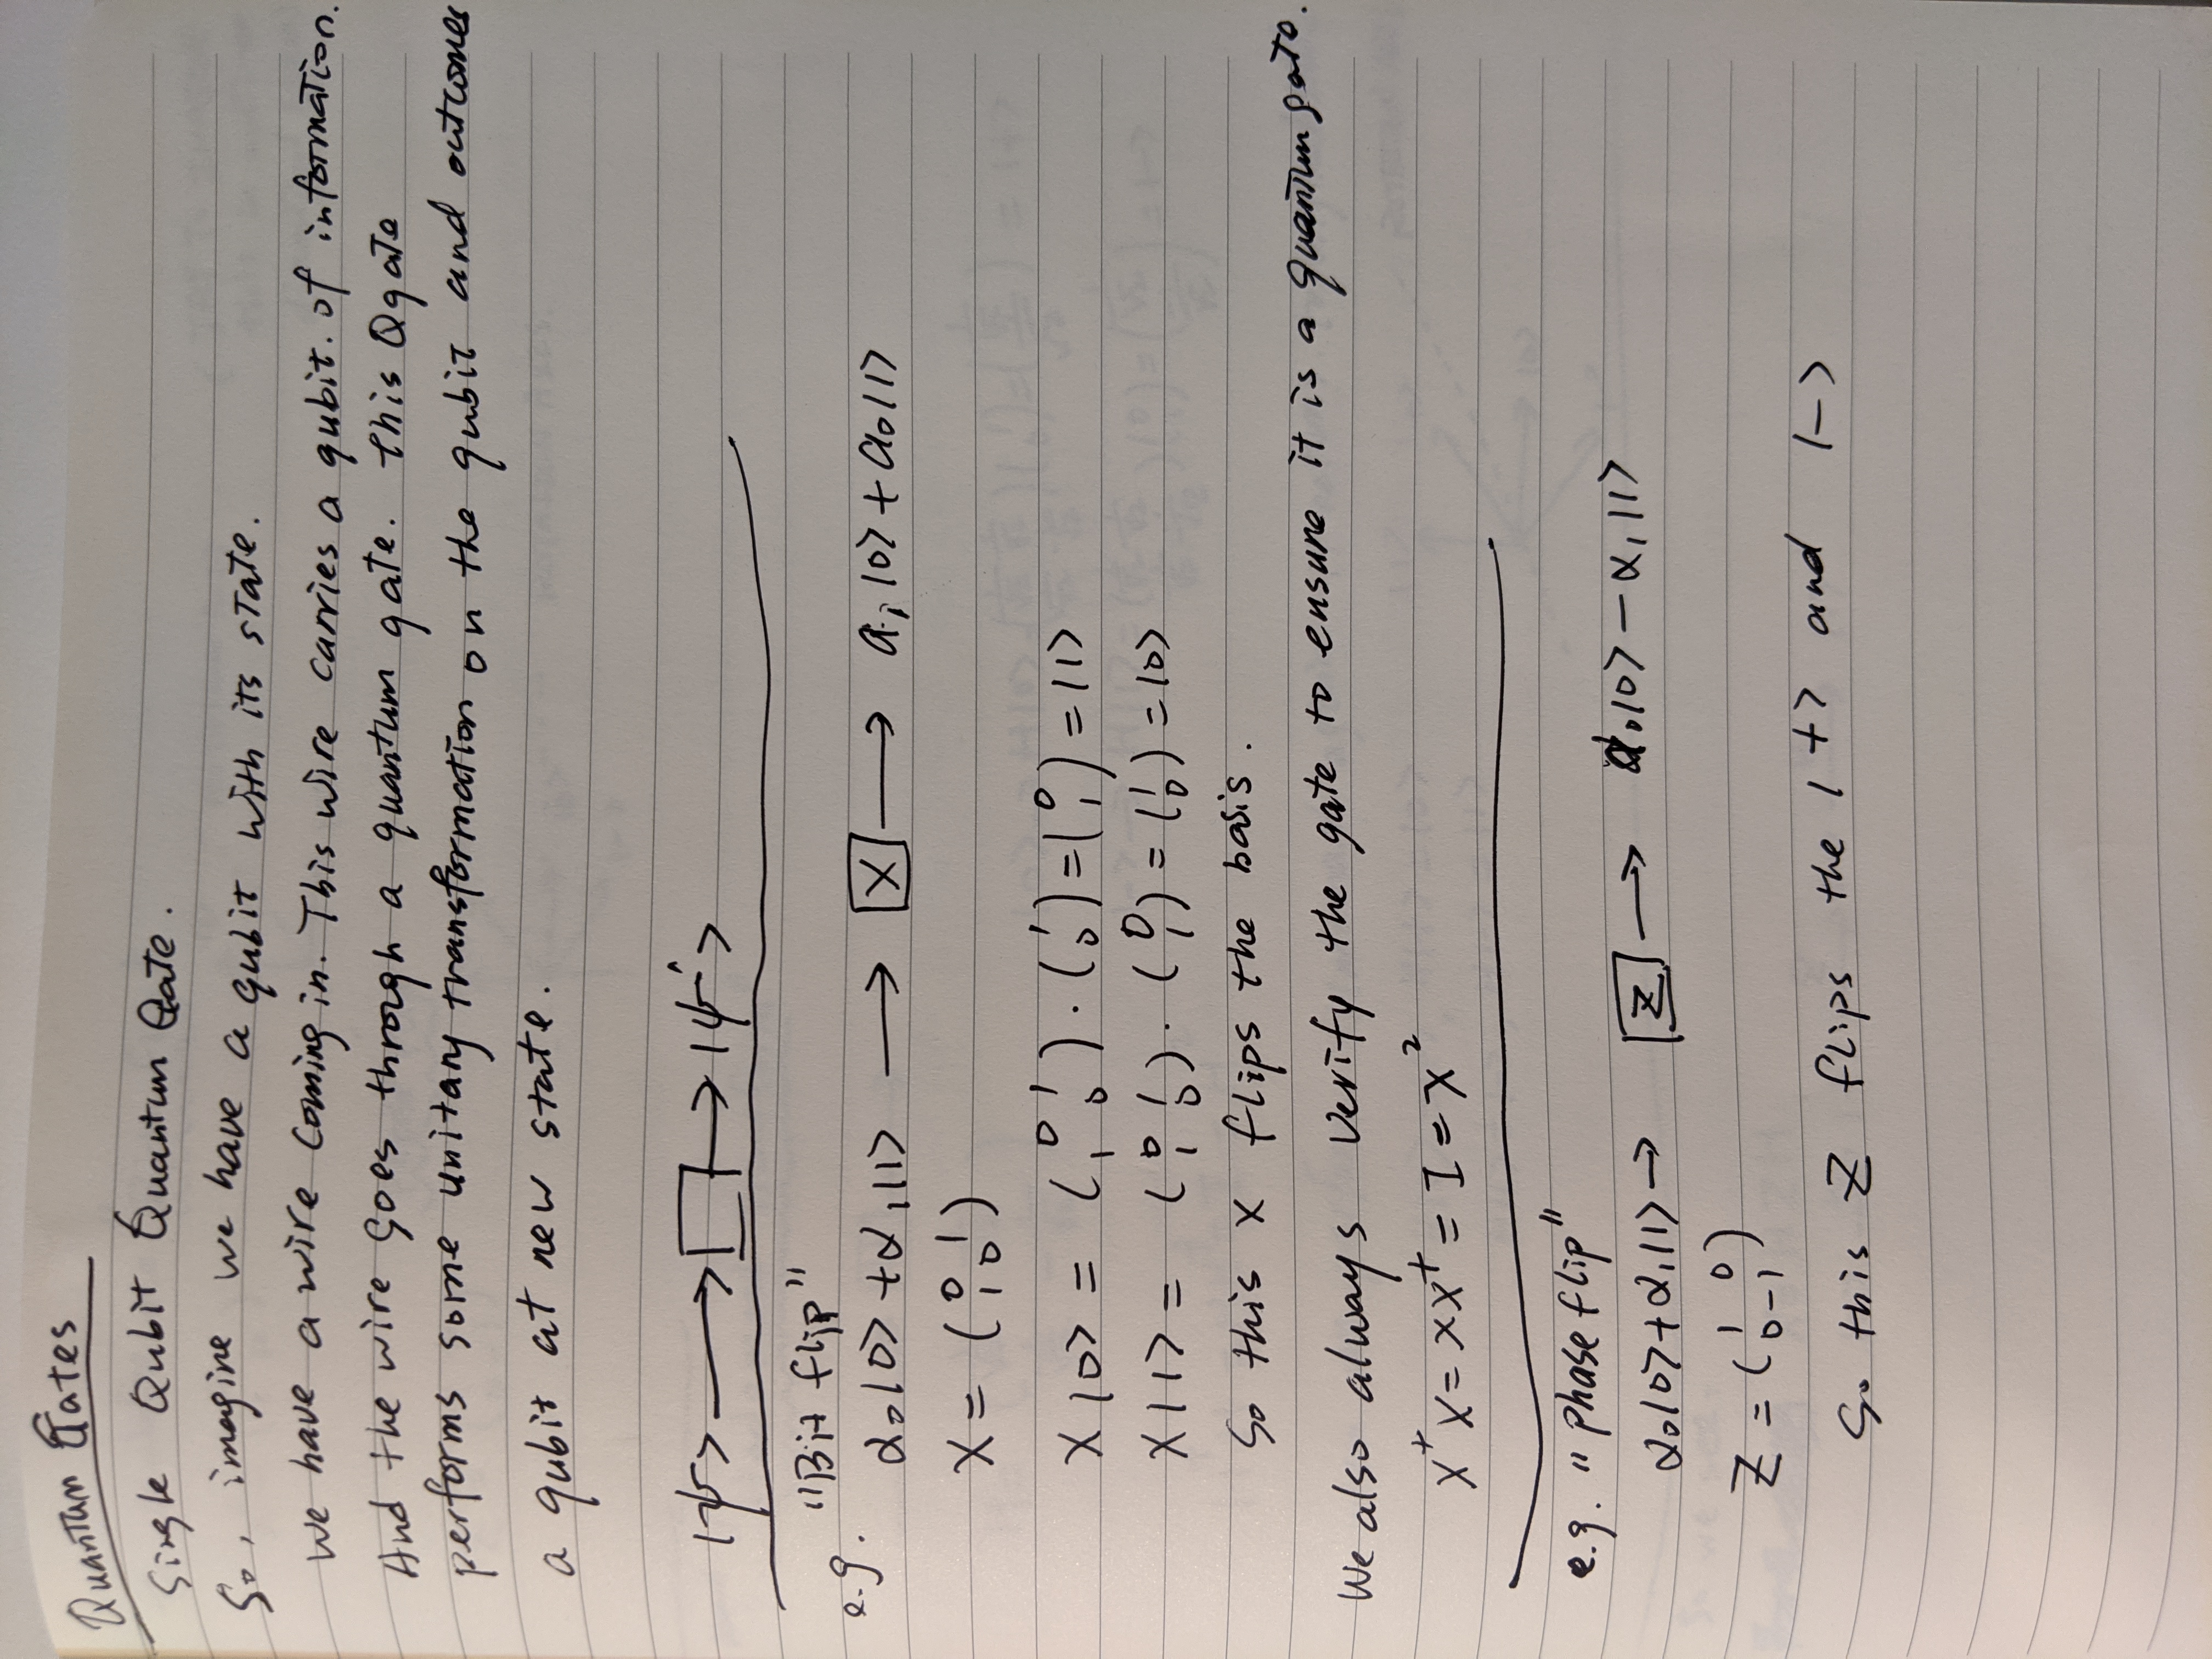 Quantum Gates
Single Qubit Quantum Gate.
So, imagine we have a qubit with its state.
We have a wire coming in. This wire carries a qubit. of information.
And the wire goes through a quantum gate. this Qgate
performs some unitary transformation on the qubit and outcomes
a qubit at new state.
|ψ> → □ → |ψ'>
"Bit flip"
e.g.
α₀|0> + α₁|1> → [X] → a₁|0> + a₀|1>
X = (0 1 / 1 0)
X|0> = (0 1 / 1 0) · (1 / 0) = (0 / 1) = |1>
X|1> = (0 1 / 1 0) · (0 / 1) = (1 / 0) = |0>
So this X flips the basis.
We also always verify the gate to ensure it is a quantum gate.
X⁺X = XX⁺ = I = X²
e.g. "phase flip"
α₀|0> + α₁|1> → [Z] → α₀|0> − α₁|1>
Z = (1 0 / 0 −1)
So this Z flips the |+> and |−>